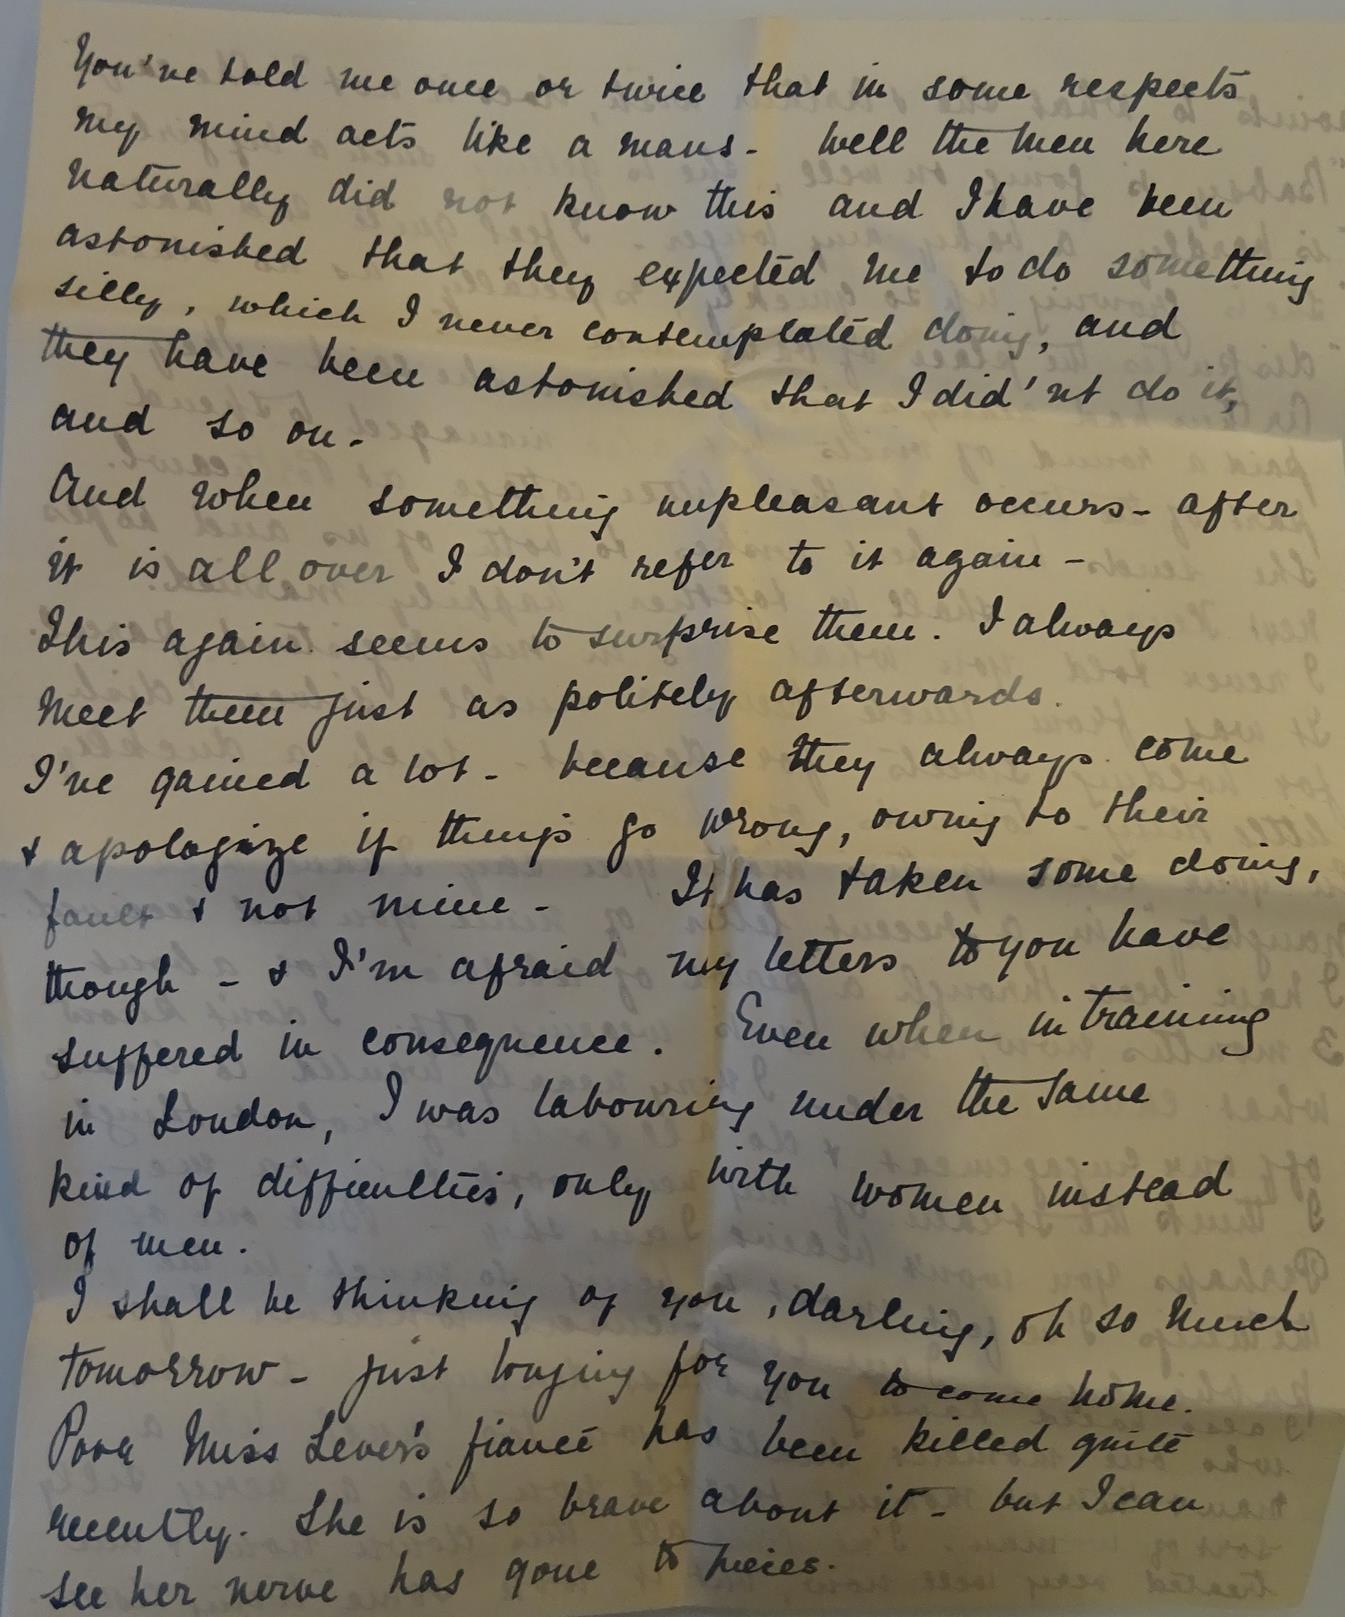 You've told me once or twice that in some respects
my mind acts like a mans - Well the men here
naturally did not know this and I have been
astonished that they expected me to do something
silly, which I never contemplated doing, and
they have been astonished that I did'nt do it,
and so on -
And when something unpleasant occurs - after
it is all over I don't refer to it again -
This again seems to surprise them. I always
meet them just as politely afterwards.
I've gained a lot - because they always come
& apologize if things go wrong, owing to their
fault & not mine - It has taken some doing,
though - & I'm afraid my letters to you have
suffered in consequence. Even when in training
in London, I was labouring under the same
kind of difficulties, only with women instead
of men.
I shall be thinking of you, darling, oh so much
tomorrow - just longing for you to come home.
Poor Miss Lever's fiancé has been killed quite
recently. She is so brave about it - but I can
see her nerve has gone to pieces.